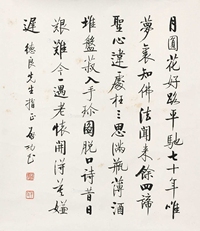 月圓花好路平馳七十年唯
夢裏知佛法聞来餘四諦
聖心違處枉三思滿瓶薄酒
堆盤菽入手珍圖脱口詩昔日
艱難今一遇老懷開得莫嫌
遲 德良先生指正 啟功書